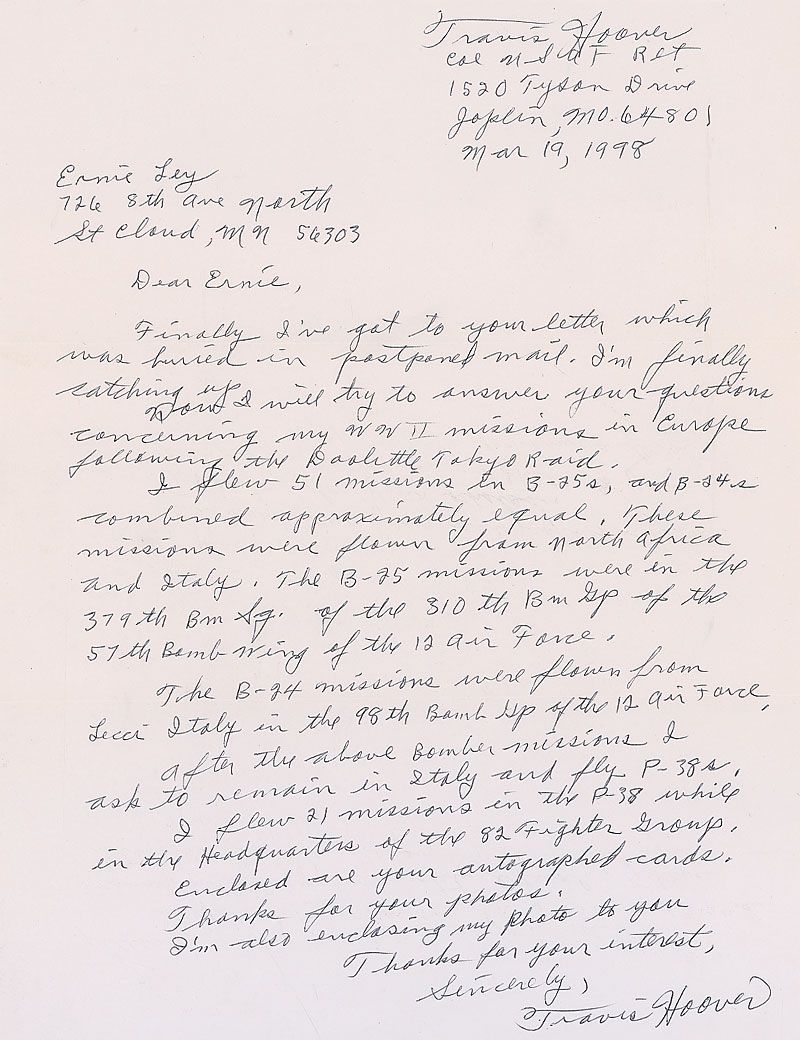 Travis Hoover
Col USAF Ret
1520 Tyson Drive
Joplin, MO. 64801
Mar 19, 1998
Ernie Ley
726 8th Ave North
St Cloud, MN 56303
Dear Ernie,
Finally I've got to your letter which
was buried in postponed mail. I'm finally
catching up
Now I will try to answer your questions
concerning my WW II missions in Europe
following the Doolittle Tokyo Raid.
I flew 51 missions in B-25s, and B-24s
combined approximately equal. These
missions were flown from North Africa
and Italy. The B-25 missions were in the
379th Bm Sq. of the 310th Bm Gp of the
57th Bomb Wing of the 12 Air Force.
The B-24 missions were flown from
Lecci Italy in the 98th Bomb Gp of the 12 Air Force,
After the above Bomber missions I
ask to remain in Italy and fly P-38s.
I flew 21 missions in the P-38 while
in the Headquarters of the 82 Fighter Group.
Enclosed are your autographed cards.
Thanks for your photos.
I'm also enclosing my photo to you
Thanks for your interest,
Sincerely,
Travis Hoover